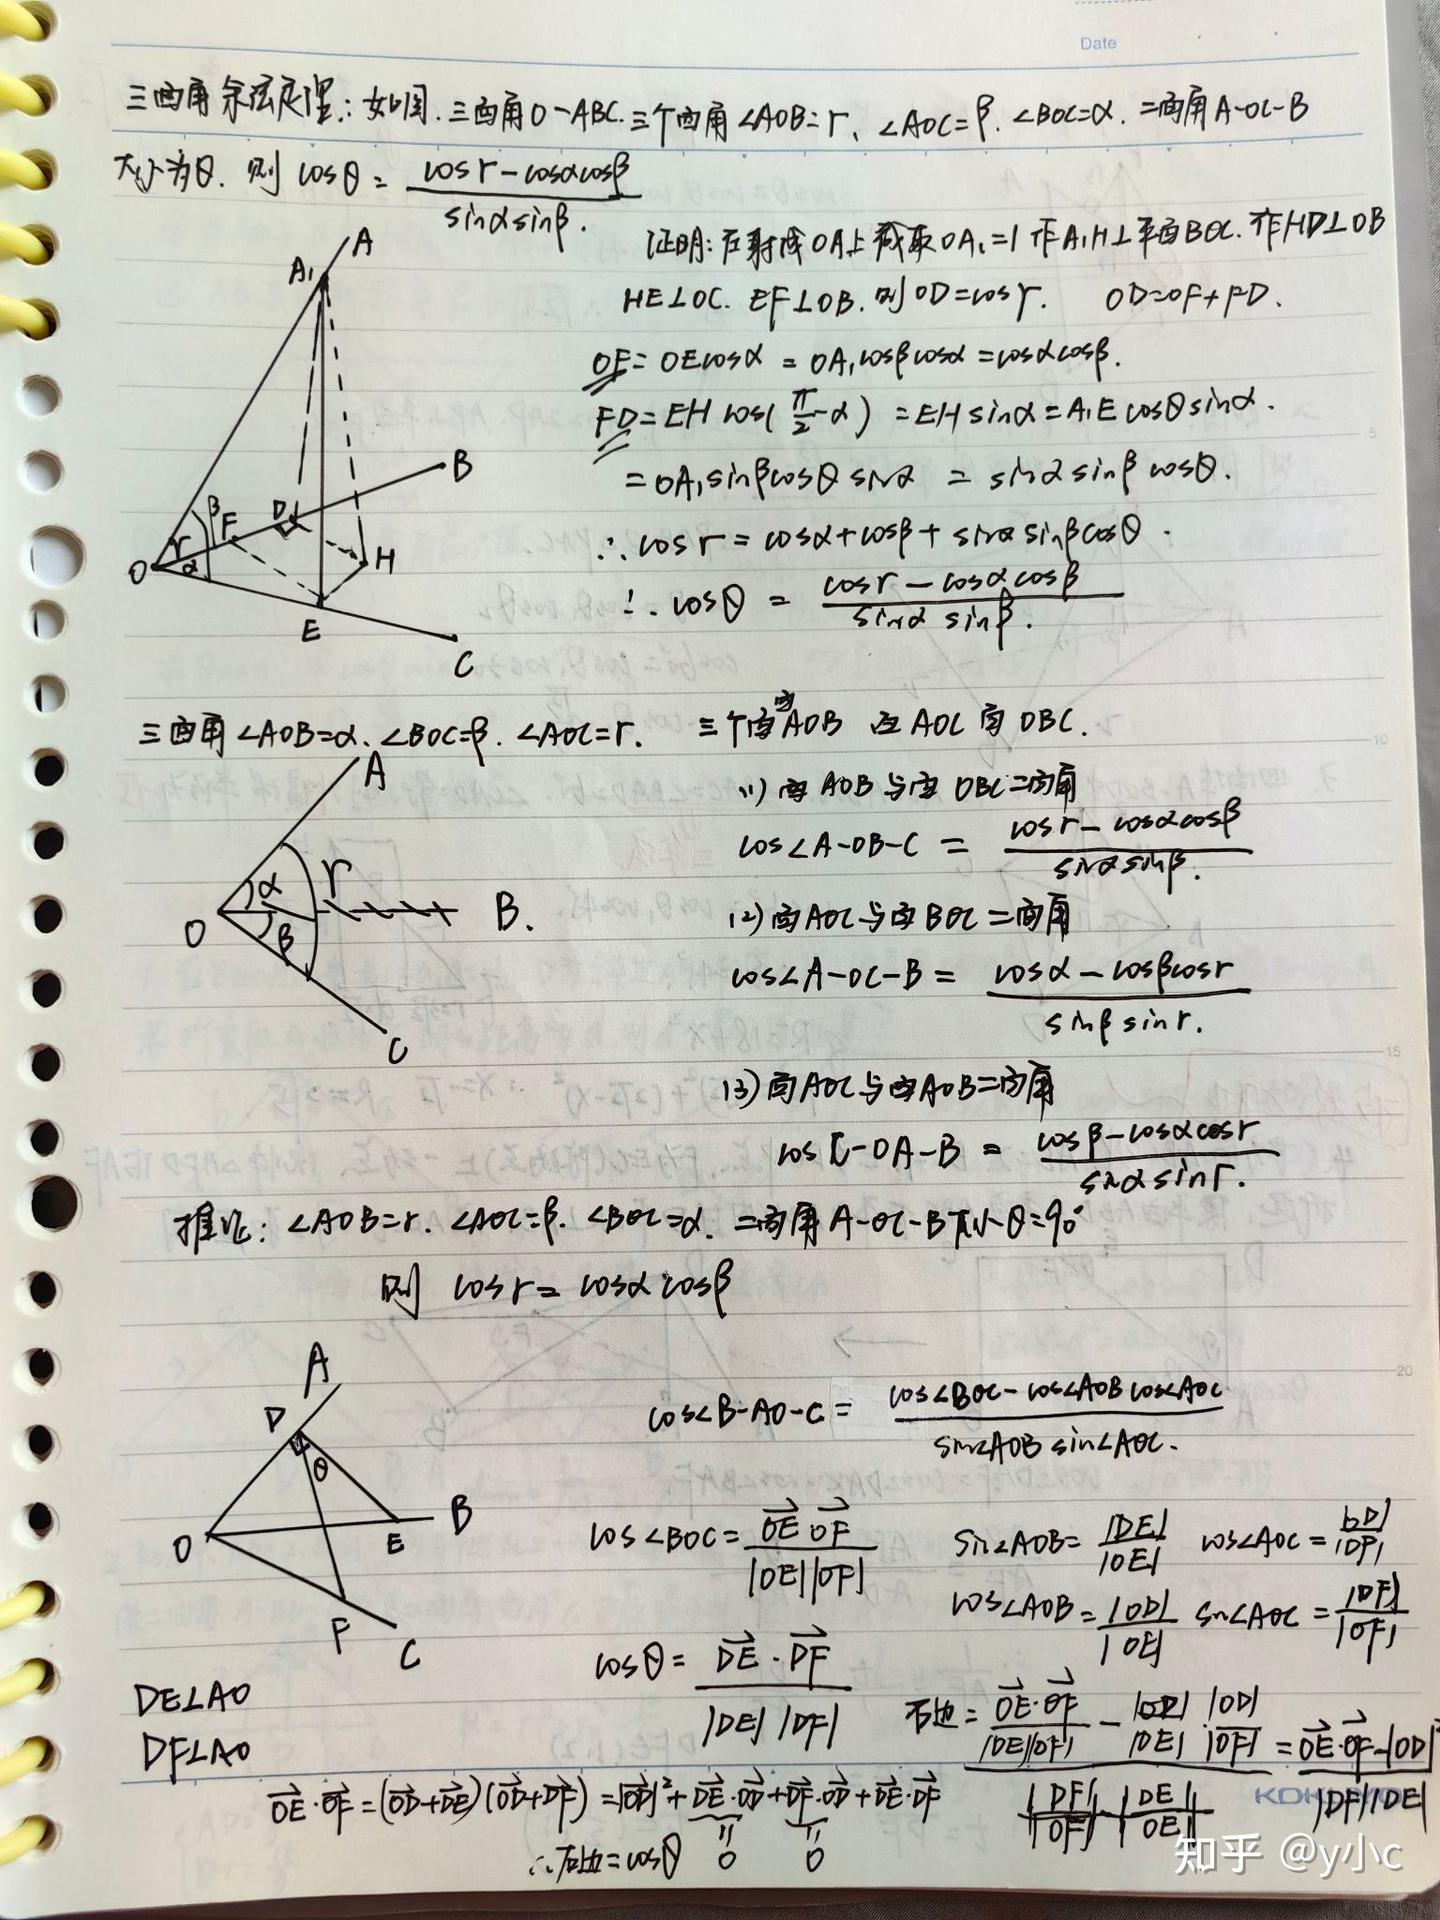 Date
三面角余弦定理:如图.三面角O-ABC.三个面角∠AOB=r、∠AOC=β.∠BOC=α.二面角A-OC-B
大小为θ.则 cosθ = (cosr-cosαcosβ)/(sinαsinβ).
证明:在射线OA上截取OA₁=1 作A₁H⊥平面BOC.作HD⊥OB
HE⊥OC. EF⊥OB.则OD=cosr. OD=OF+FD.
OF=OEcosα = OA₁cosβcosα=cosαcosβ.
FD=EH cos(π/2-α) =EH sinα=A₁E cosθsinα.
=OA₁sinβcosθ sinα = sinαsinβ cosθ.
∴cosr=cosα+cosβ+sinαsinβcosθ.
∴cosθ = (cosr-cosαcosβ)/(sinα sinβ).
A
A₁
B
β
F
D
r
α
O
H
E
C
三面角∠AOB=α.∠BOC=β.∠AOC=r. 三个面 面AOB 面AOC 面OBC.
(1)面AOB与面OBC二面角
cos∠A-OB-C = (cosr-cosαcosβ)/(sinαsinβ).
(2)面AOC与面BOC二面角
cos∠A-OC-B = (cosα-cosβcosr)/(sinβsinr).
(3)面AOC与面AOB二面角
cos C-OA-B = (cosβ-cosαcosr)/(sinαsinr).
A
α
r
O
β
B.
C
推论:∠AOB=r.∠AOC=β.∠BOC=α.二面角A-OC-B大小θ=90°
则 cosr=cosαcosβ
A
D
θ
O
E
B
F
C
cos∠B-AO-C = (cos∠BOC-cos∠AOBcos∠AOC)/(sin∠AOB sin∠AOC).
cos∠BOC = (→OE →OF)/(|OE||OF|) sin∠AOB=|DE|/|OE| cos∠AOC=|OD|/|OF|
cos∠AOB=|OD|/|OE| sin∠AOC=|DF|/|OF|
cosθ = (→DE·→DF)/(|DE||DF|)
DE⊥AO
DF⊥AO
右边 = (→OE·→OF/(|OE||OF|) - |OD|/|OE|·|OD|/|OF|)/(|DF|/|OF|·|DE|/|OE|) = (→OE·→OF-|OD|²)/(|DF||DE|)
→OE·→OF=(→OD+→DE)(→OD+→DF)=|→OD|²+→DE·→OD+→DF·→OD+→DE·→DF
∴右边=cosθ = 0 = 0
5
10
15
20
知乎 @y小c